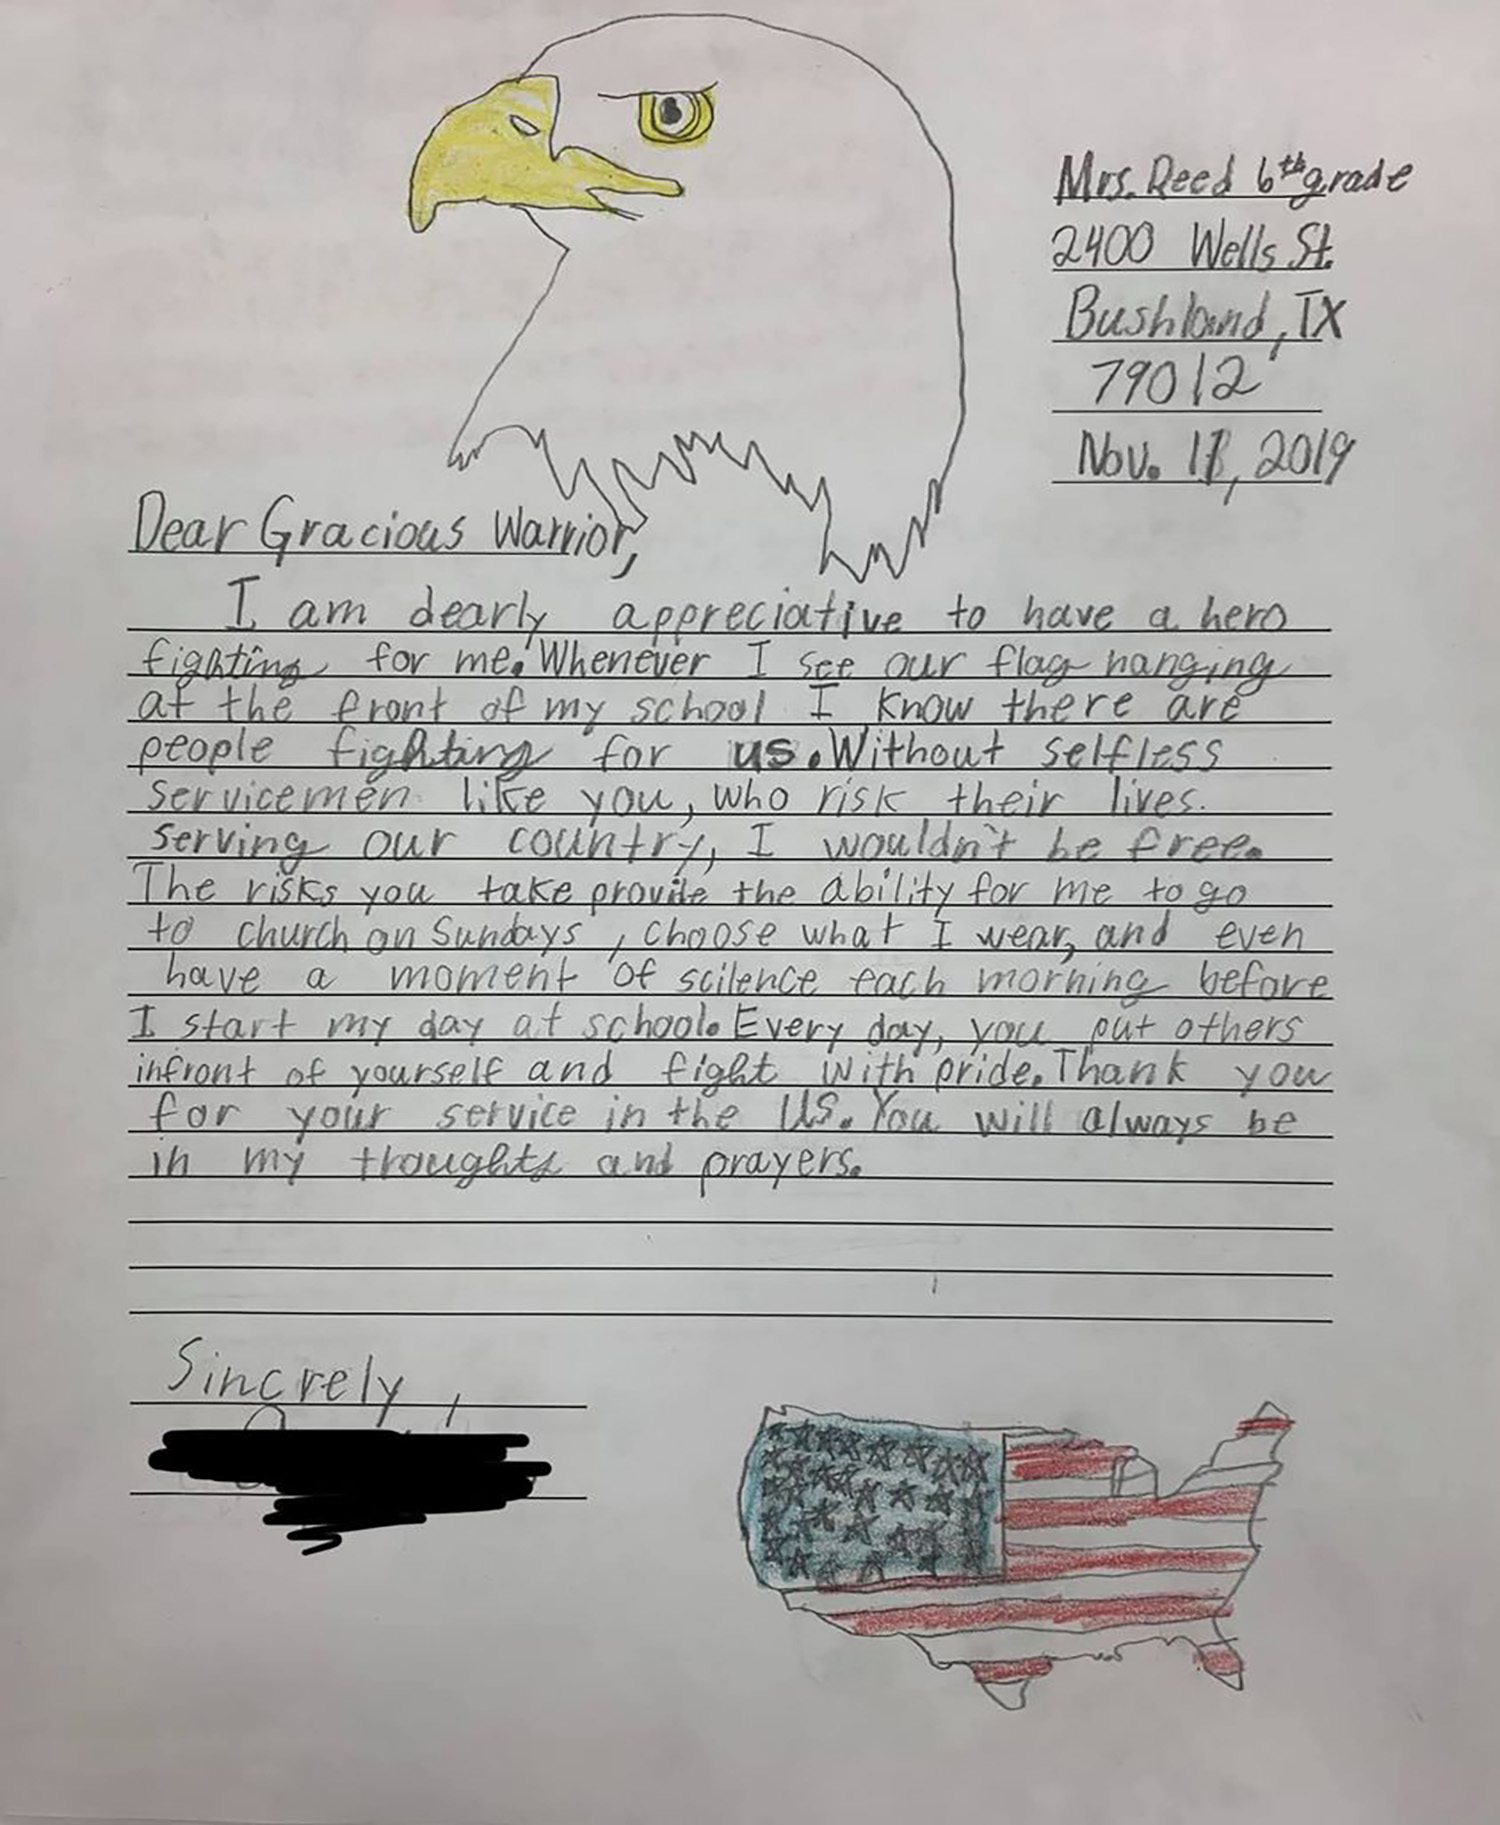 Mrs. Reed 6th grade
2400 Wells St.
Bushland, TX
79012
Nov. 11, 2019
Dear Gracious Warrior,
I am dearly appreciative to have a hero
fighting for me. Whenever I see our flag hanging
at the front of my school I know there are
people fighting for us. Without selfless
servicemen like you, who risk their lives.
serving our country, I wouldn't be free.
The risks you take provite the ability for me to go
to church on Sundays, choose what I wear, and even
have a moment of scilence each morning before
I start my day at school. Every day, you put others
infront of yourself and fight with pride. Thank you
for your service in the US. You will always be
in my thoughts and prayers.
Sincrely,